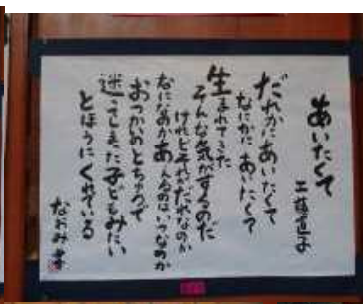 あいたくて
工藤直子
だれかにあいたくて
なにかにあいたくて
生まれてきた
そんな気がするのだ
けれど それがだれなのか
なになのか あえるのはいつなのか
おつかいのとちゅうで
迷ってしまった子どもみたい
とほうにくれている
なおみ書